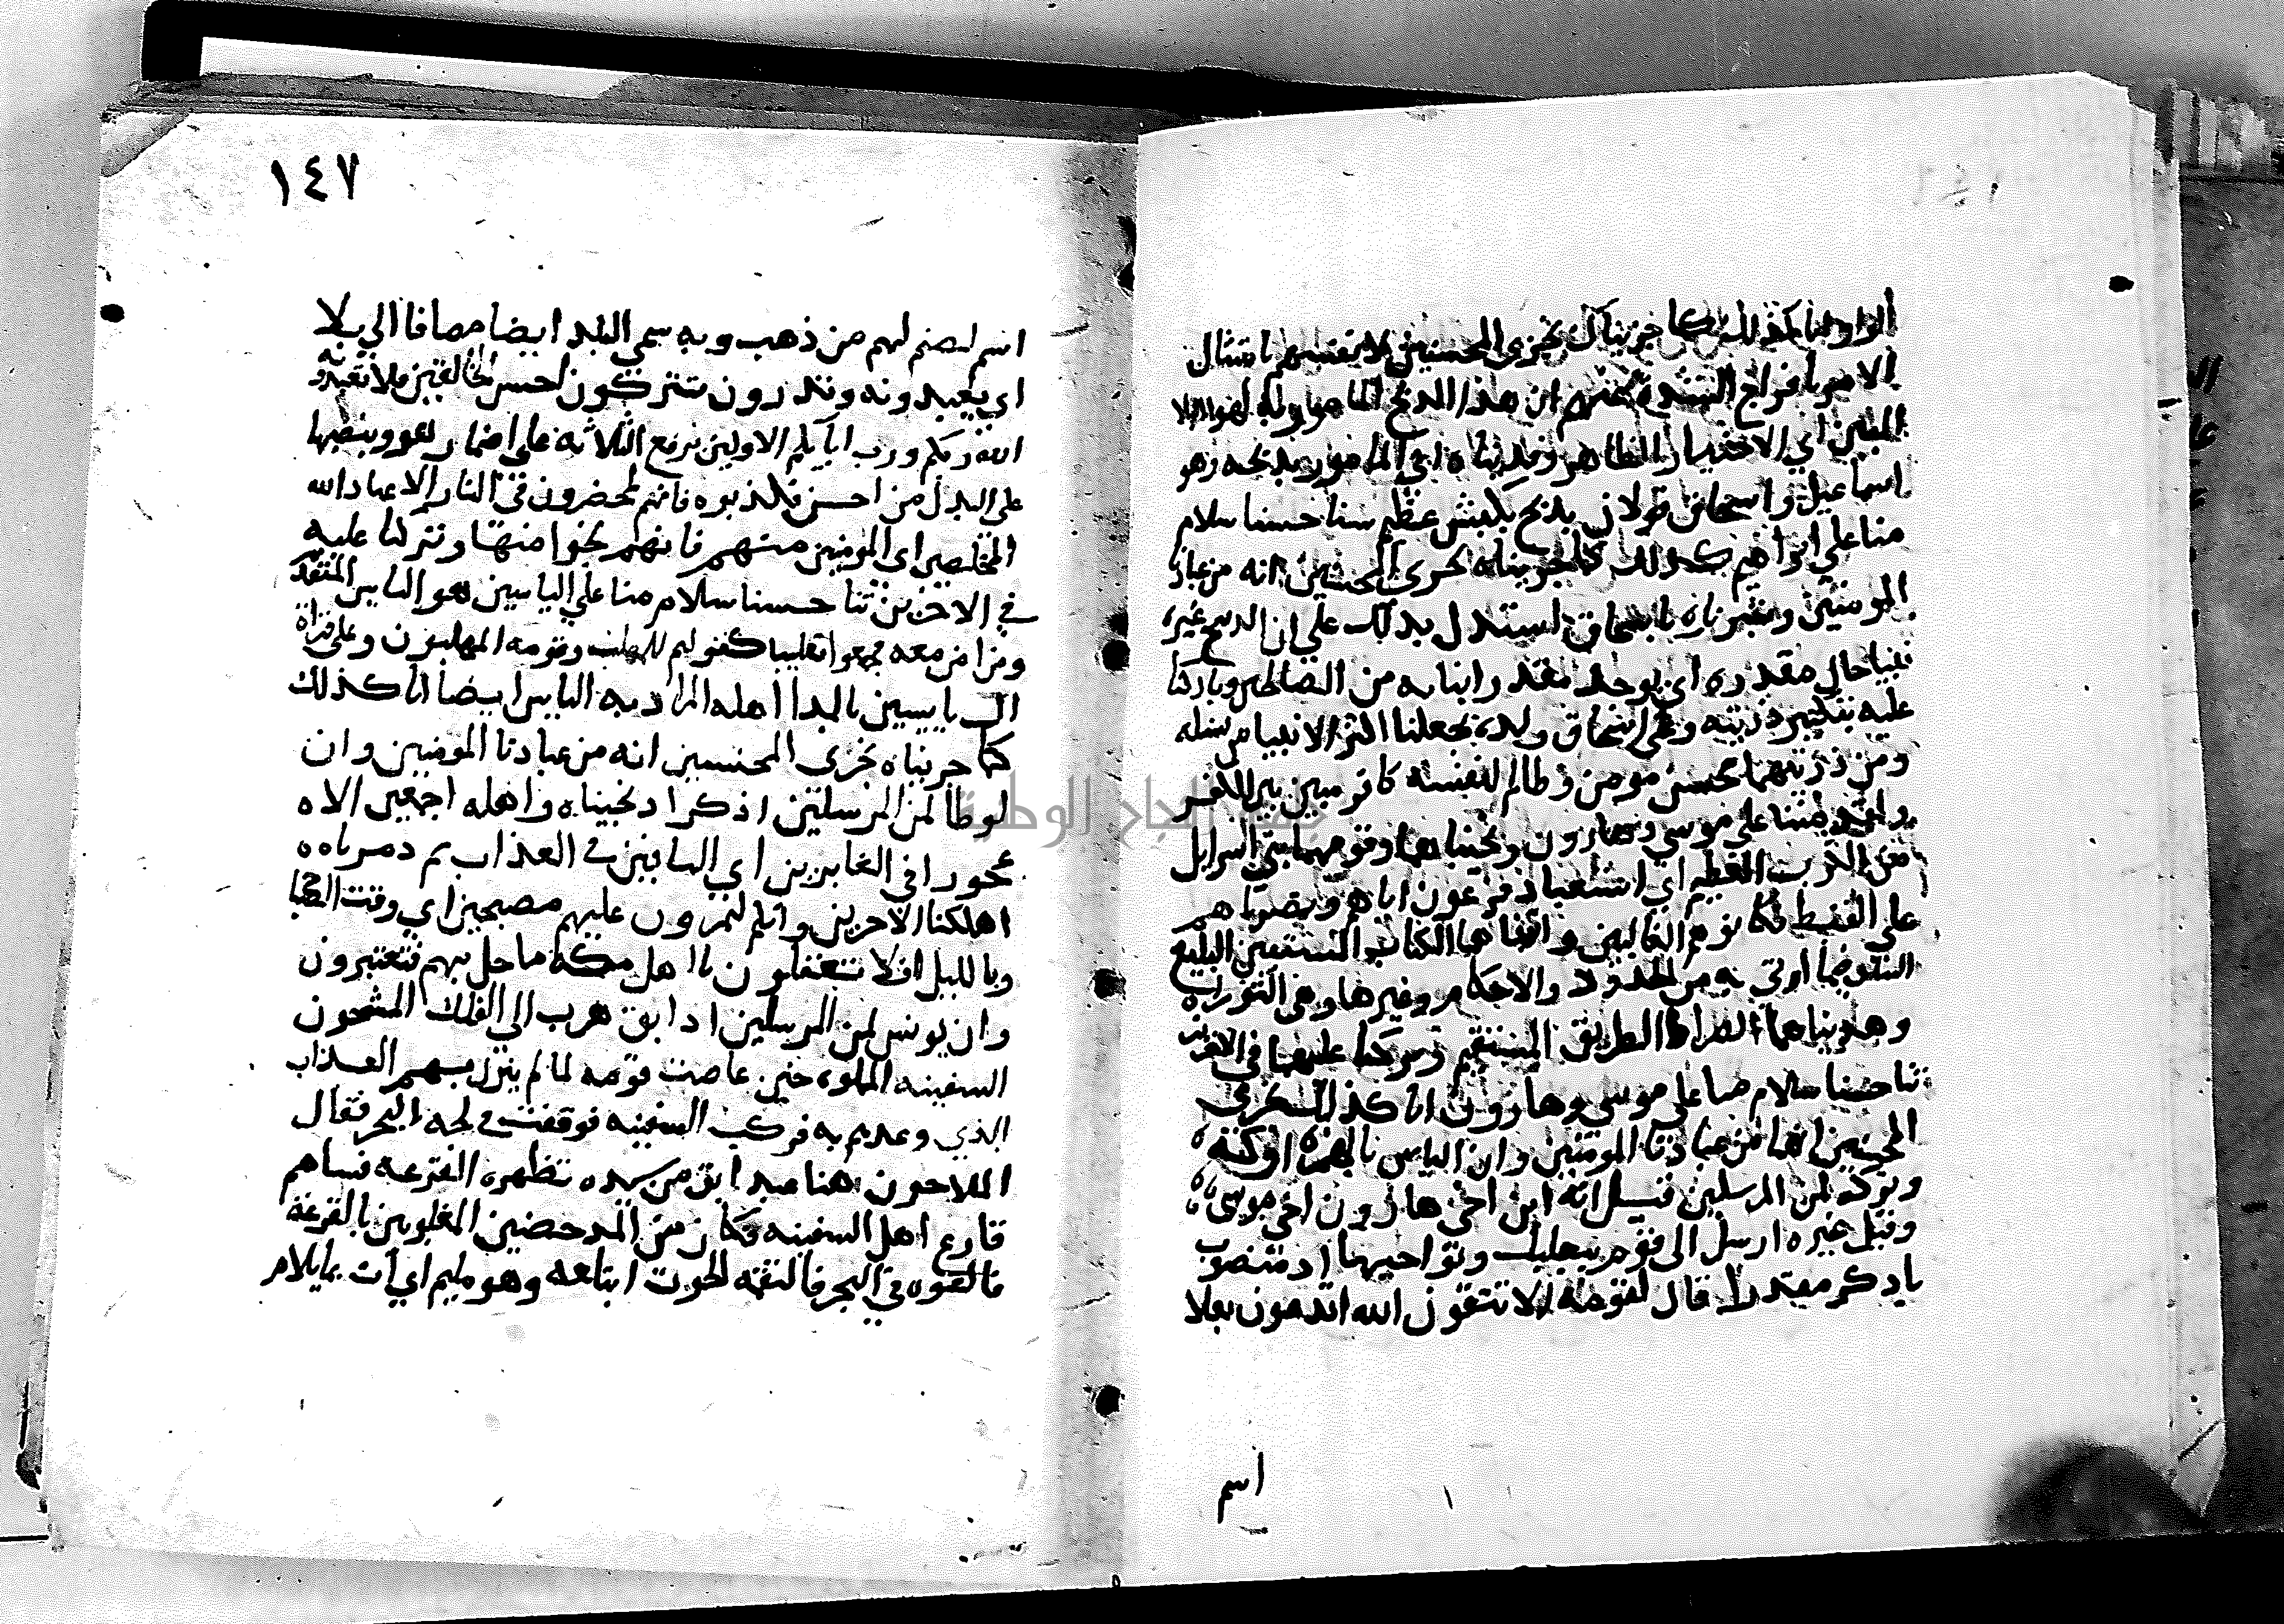 الواو انا كذلك كما جزيناك نجزى المحسنين لانفسهم بامتثال
الامر بافراج الشدة عنهم ان هذا الذبح المامور به لهو البلا
المبين اي الاختبار الظاهر وفديناه اي المامور بذبحه وهو
اسماعيل واسحاق قولان بذبح بكبش عظيم
منا على ابراهيم كذلك كما جزيناه نجزى المحسنين انه من عبادنا
المومنين وبشرناه باسحاق استدل بذلك على ان الذبيح غيره
نبيا حال مقدره اي يوجد مقدرا نبايه من الصالحين وباركنا
عليه بتكثير ذريته وعلى اسحاق ولده بجعلنا اكثر الانبيا من نسله
ومن ذريتهما محسن مومن وظالم لنفسه كافر مبين بين الكفر
ولقد مننا على موسي وهارون ونجيناهما وقومهما بني اسرايل
من الكرب العظيم اي استعباد فرعون اياهم ونصرناهم
على القبط فكانوا هم الغالبين واتيناهما الكتاب المستبين البليغ
البيان فيما اوتي به من الحدود والاحكام وغيرها وهو التوراة
وهديناهما الصراط الطريق المستقيم وتركنا عليهما في الاخرين
ثنا حسنا سلام منا على موسي وهارون انا كذلك نجزى
المحسنين انهما من عبادنا المومنين وان الياس بالهمزة اوله
وتركه لمن المرسلين قيل انه ابن اخي هارون اخي موسى
وقيل غيره ارسل الى قوم ببعلبك ونواحيها اذ منصوب
باذكر مقدرا قال لقومه الا تتقون الله اتدعون بعلا
اسم
١٤٧
اسم لصنم لهم من ذهب وبه سمي البلد ايضا مضافا الي بلا
اي يعبدونه وتذرون تتركون احسن الخالقين فلا تعبدونه
الله ربكم ورب ابايكم الاولين برفع الثلاثه على اضمار هو وبنصبها
على البدل من احسن فكذبوه فانهم لمحضرون في النار الا عباد الله
المخلصين اي المومنين منهم فانهم نجوا منها وتركنا عليه
في الاخرين ثنا حسنا سلام منا على الياسين هو الياس المتقدم
ومن امن معه فجمعوا تغليبا كقولهم للمهلب وقومه المهلبون وعلى قراة
ال ياسين بالمد اهله المراد به الياس ايضا انا كذلك
كما جزيناه نجزى المحسنين انه من عبادنا المومنين وان
لوطا لمن المرسلين اذكر اذ نجيناه واهله اجمعين الا
عجوزا في الغابرين اي الباقين في العذاب ثم دمرنا
اهلكنا الاخرين وانكم لتمرون عليهم مصبحين اي وقت الصباح
وبالليل افلا تعقلون يا اهل مكة ما حل بهم فتعتبرون
وان يونس لمن المرسلين اذ ابق هرب الى الفلك المشحون
السفينه المملوه حين غاضب قومه لما لم ينزل بهم العذاب
الذي وعدهم به فركب السفينه فوقفت في لجه البحر فقال
الملاحون هنا عبد ابق من سيده تظهره القرعه فساهم
قارع اهل السفينه فكان من المدحضين المغلوبين بالقرعة
فالقوه في البحر فالتقمه الحوت ابتلعه وهو مليم اي ات بما يلام